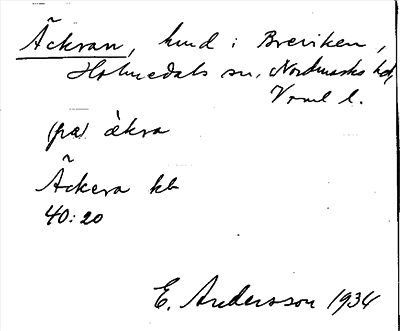 Åckran, hmd i Breviken,
Holmedals sn, Nordmarks hd,
Vrml l.
(på) åkra
Åckera kb
40:20
E. Andersson 1934